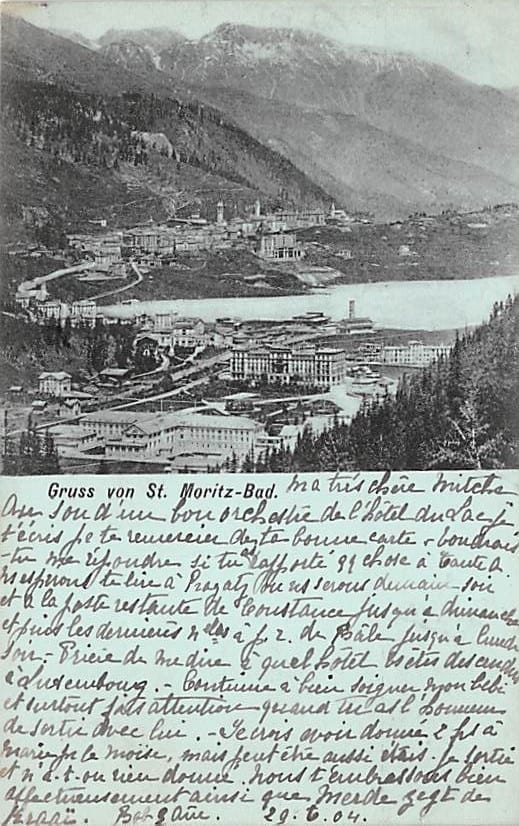 Gruss von St. Moritz-Bad.
Ma très chère Mitche
Au son d'un bon orchestre de l'hôtel du Lac je
t'écris je te remercier de ta bonne carte - voudrais
-tu me répondre si tu as rapporté qq chose à Tante A.
ns espérons te lire à Ragatz où ns serons demain soir
et à la poste restante de Constance jusqu'à dimanche
et puis les dernières nlles à p. r. de Bâle jusqu'à lundi
soir. - Prière de me dire à quel hôtel vs êtes descendus
à Luxembourg. - Continue à bien soigner mon bébé
et surtout fais attention quand tu as l'honneur
de sortir avec lui. - Je crois avoir donné 2 frs à
Marie pr le mois, mais peut être aussi étais-je sortie
et n'a-t-on rien donné. Nous t'embrassons bien
affectueusement ainsi que
29.6.04.